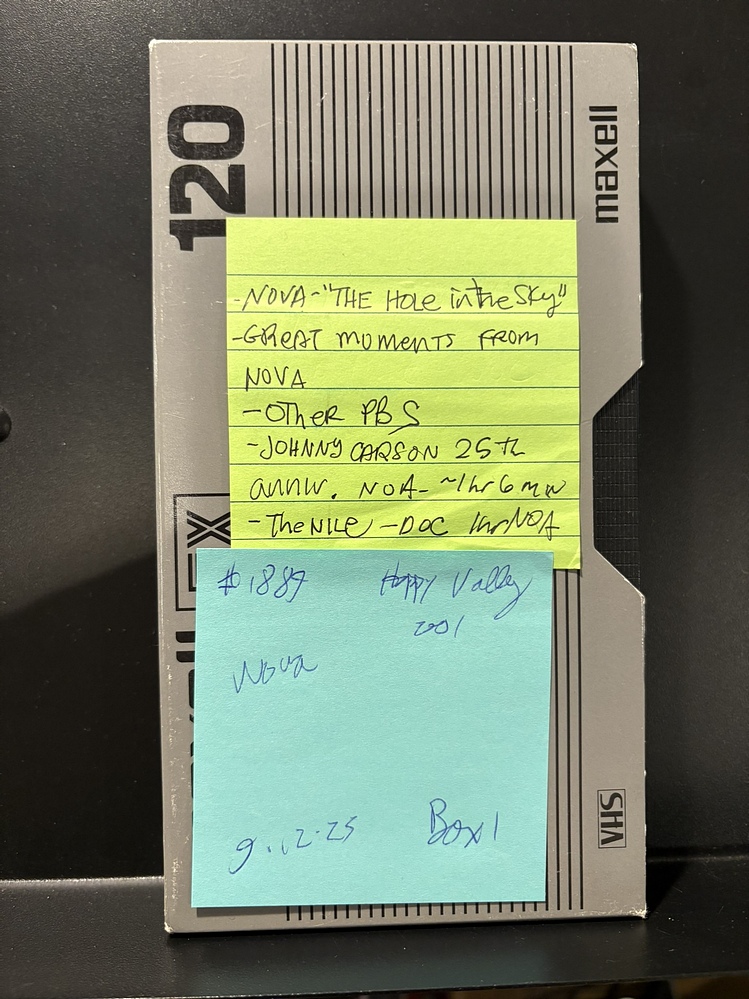 120
maxell
-NOVA-"THE HOLE in the SKY"
-GREAT MOMENTS FROM
NOVA
-OTHER PBS
-JOHNNY CARSON 25Th
anniv. NOA- ~1hr 6 min
-The NILE -DOC 1hr NOA
EX
#1889 Happy Valley
2001
Nova
9.12.25 Box 1
VHS